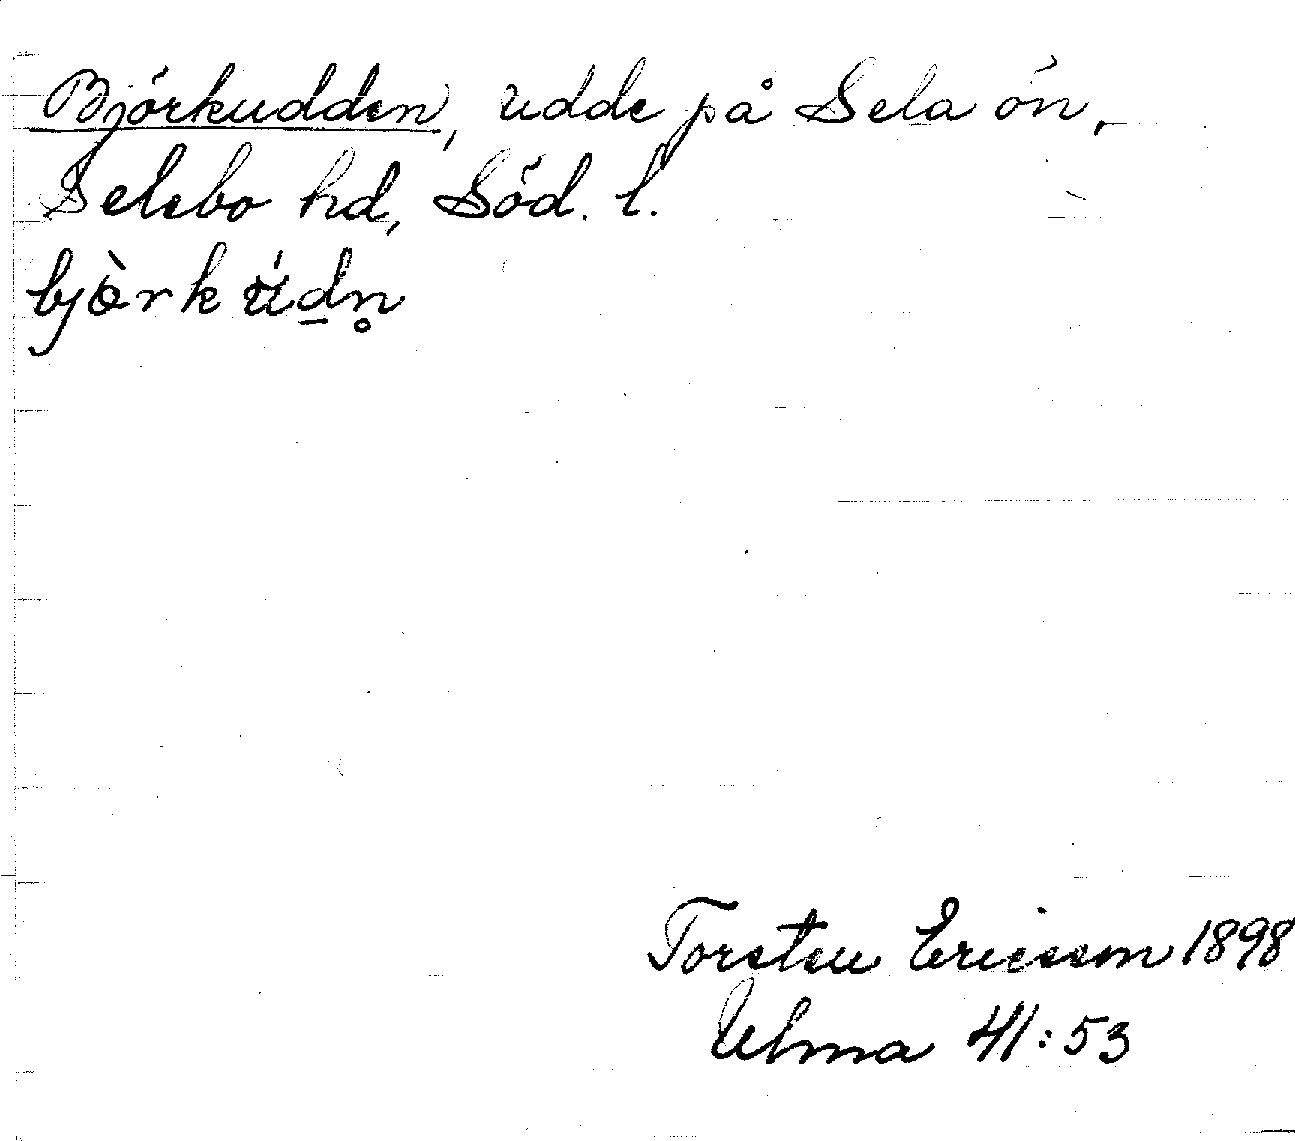 Björkudden, udde på Sela ön,
Selebo hd, Söd. l.
bjö̀rku̇́d̲n̥
Torsten Ericsson 1898
Ulma 41:53